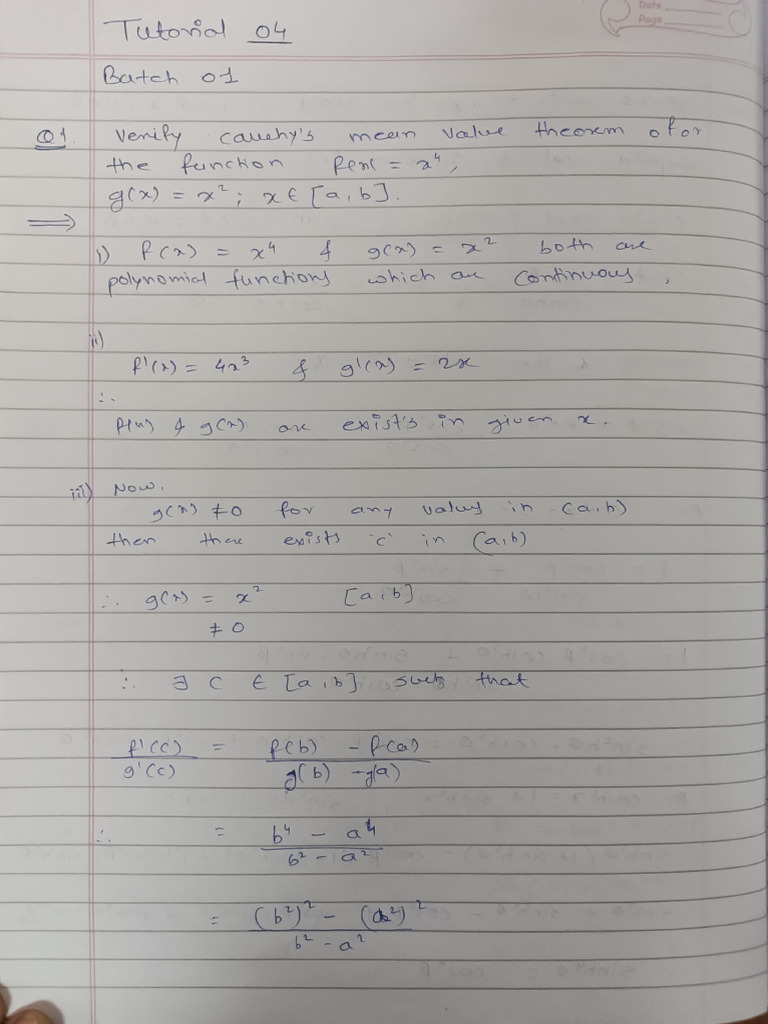 Date
Page
Tutorial 04
Batch 01
Q1. Verify cauchy's mean value theorem ofor
the function f(x) = x⁴,
g(x) = x² ; x ∈ [a, b].
⟹
i) f(x) = x⁴ & g(x) = x² both are
polynomial functions which are continuous,
ii)
f'(x) = 4x³ & g'(x) = 2x
∴
f(x) & g(x) are exist's in given x.
iii) Now,
g(x) ≠ 0 for any values in (a,b)
then there exists 'c' in (a,b)
∴ g(x) = x² [a,b]
≠ 0
∴ ∃ c ∈ [a,b] such that
f'(c) / g'(c) = f(b) - f(a) / g(b) - g(a)
∴ = b⁴ - a⁴ / b² - a²
= (b²)² - (a²)² / b² - a²